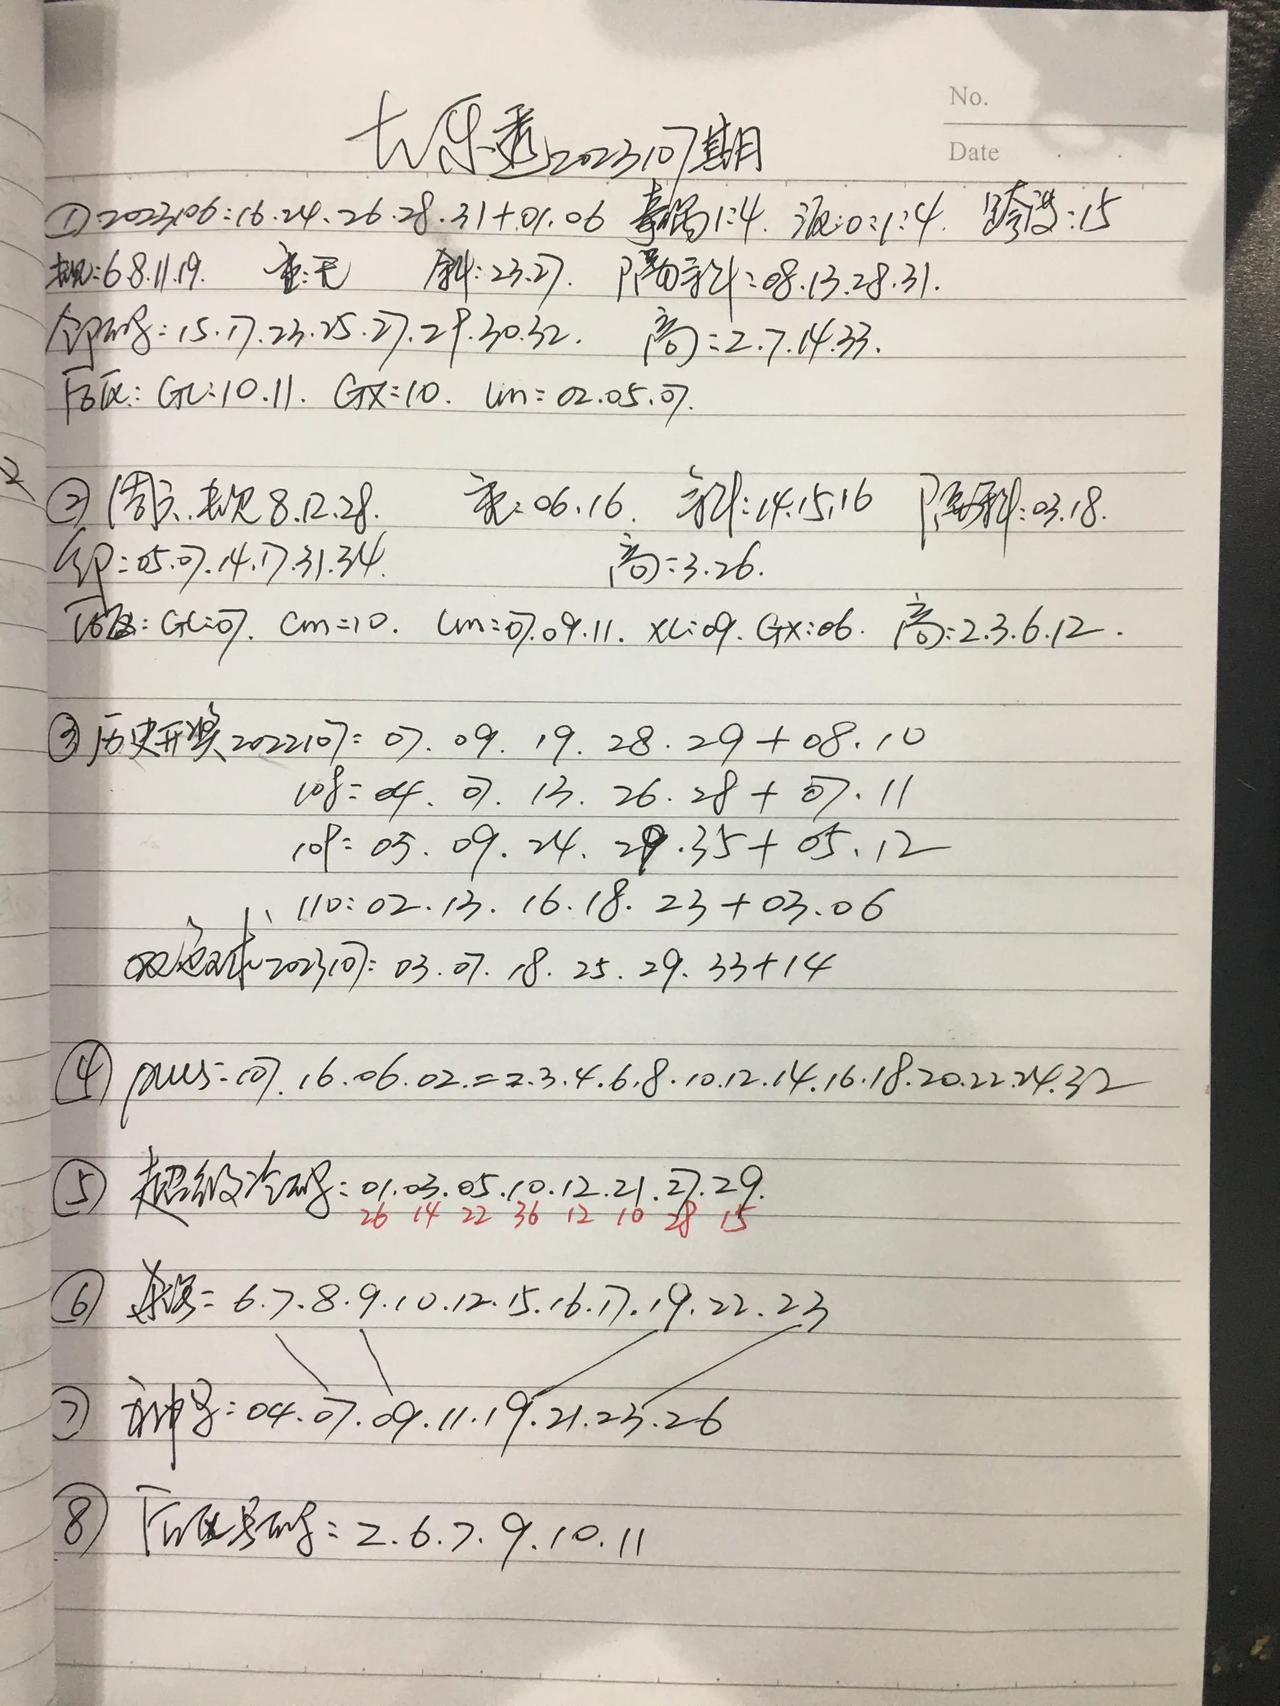 No.
Date
大乐透2023107期
①2023106:16.24.26.28.31+01.06 奇偶1:4. :0:1:4. 跨度:15
:6.8.11.19. 重:无 斜:23.27. 隔斜:08.13.28.31.
邻码:15.17.23.25.27.29.30.32. 高:2.7.14.33.
后区:GL:10.11. GX:10. Lm:02.05.07.
②周六. 8.12.28. 重:06.16. 斜:14.15.16 隔斜:03.18.
邻:05.07.14.17.31.34. 高:3.26.
后区:GL:07. Cm=10. Lm:07.09.11. XL:09. GX:06. 高:2.3.6.12.
③历史开奖2022107:07.09.19.28.29+08.10
108=04.07.13.26.28+07.11
109=05.09.24.29.35+05.12
110:02.13.16.18.23+03.06
双色球2023107:03.07.18.25.29.33+14
④ 107.16.06.02.=2.3.4.6.8.10.12.14.16.18.20.22.24.32
⑤ 超级冷码:01.03.05.10.12.21.27.29.
26 14 22 36 12 10 28 15
⑥ =6.7.8.9.10.12.15.16.17.19.22.23
⑦ 神号:04.07.09.11.19.21.23.26
⑧ 后区号码:2.6.7.9.10.11